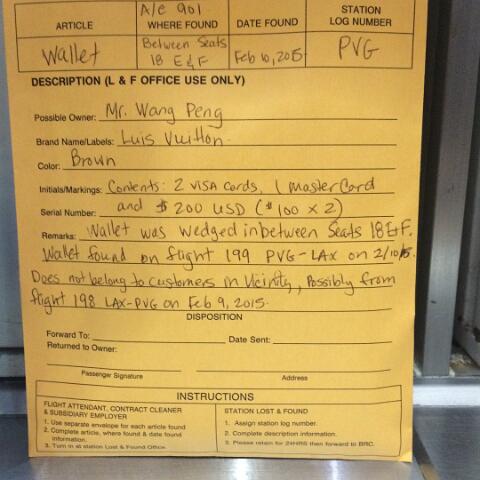 A/c 901
ARTICLE WHERE FOUND DATE FOUND STATION LOG NUMBER
Wallet Between Seats 18 E & F Feb 10, 2015 PVG
DESCRIPTION (L & F OFFICE USE ONLY)
Possible Owner: Mr. Wang Peng
Brand Name/Labels: Luis Vuitton
Color: Brown
Initials/Markings: Contents: 2 VISA Cards, 1 MasterCard
Serial Number: and $200 USD ($100 x 2)
Remarks: Wallet was wedged inbetween Seats 18E&F.
Wallet found on flight 199 PVG-LAX on 2/10/15.
Does not belong to customers in Vicinity, Possibly from
flight 198 LAX-PVG on Feb 9, 2015.
DISPOSITION
Forward To: Date Sent:
Returned to Owner:
Passenger Signature Address
INSTRUCTIONS
FLIGHT ATTENDANT, CONTRACT CLEANER
& SUBSIDIARY EMPLOYER
1. Use separate envelope for each article found
2. Complete article, where found & date found
information.
3. Turn in at station Lost & Found Office.
STATION LOST & FOUND
1. Assign station log number.
2. Complete description information.
3. Please retain for 24HRS then forward to BRC.